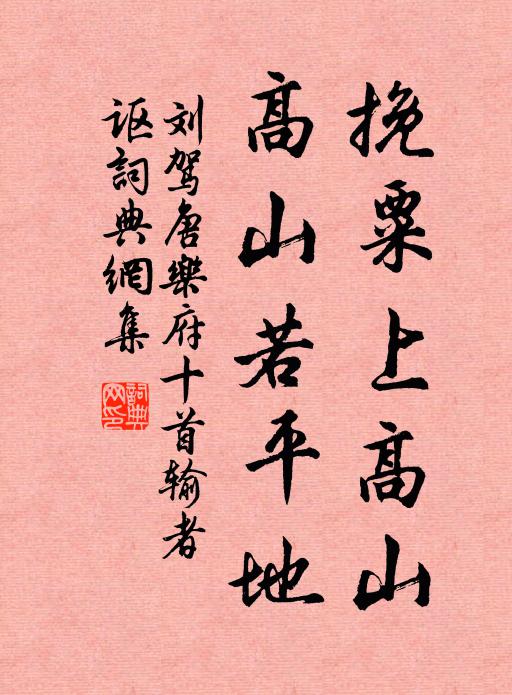 挽粟上高山
高山若平地
刘驾唐樂府十首输者
讴詞典網集
詞典
网印